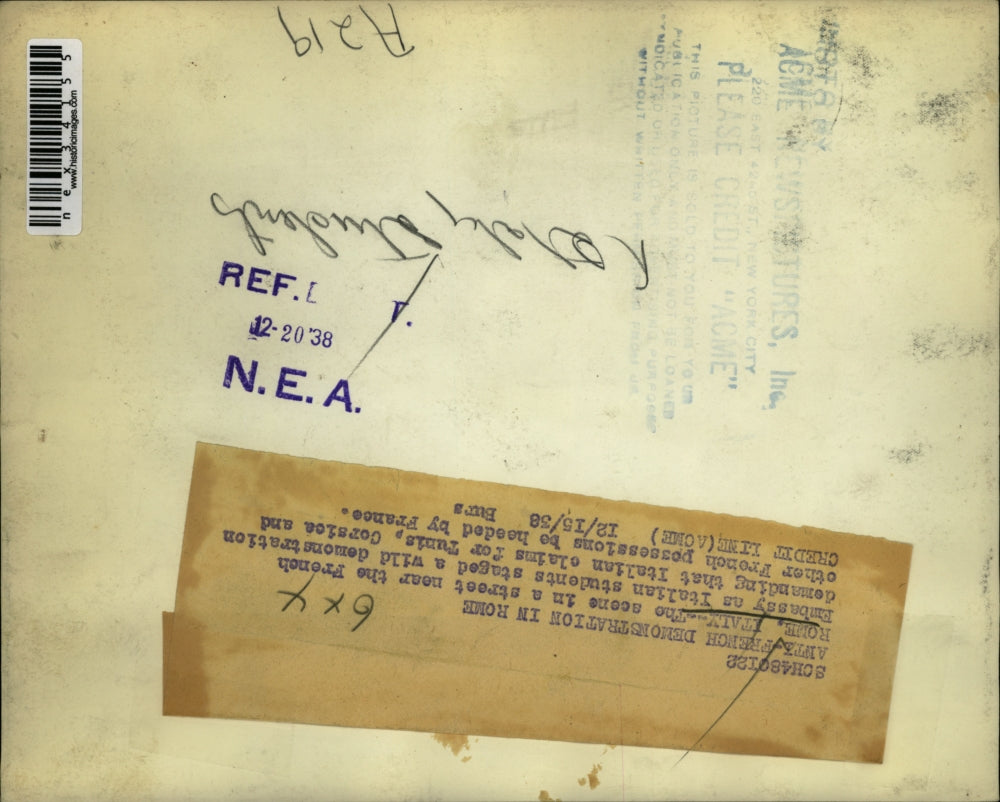 A219
nex34155
www.historicimages.com
Italy, Students
REF.
12-20'38
N.E.A.
ACME NEWSPICTURES, Inc.
220 EAST 42ND ST. NEW YORK CITY
PLEASE CREDIT "ACME"
THIS PICTURE IS SOLD TO YOU FOR YOUR
PUBLICATION ONLY AND MUST NOT BE LOANED
SYNDICATED OR USED FOR PURPOSES
WITHOUT WRITTEN PERMISSION FROM US
SCH480122
ANTI-FRENCH DEMONSTRATION IN ROME
ROME, ITALY--The scene in a street near the French
Embassy as Italian students staged a wild demonstration
demanding that Italian claims for Tunis, Corsica and
other French possessions be heeded by France.
CREDIT LINE (ACME) 12/15/38 Burs
6x4